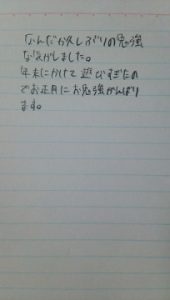 なんだか久しぶりの勉強
な気がしました。
年末にかけて遊びすぎたの
でお正月にお勉強がんばり
ます。